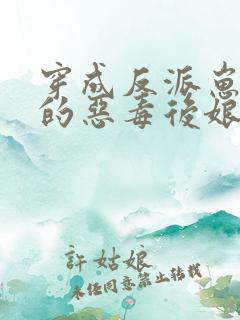 穿成反派崽
的惡毒後娘
許姑娘
未经同意禁止转载